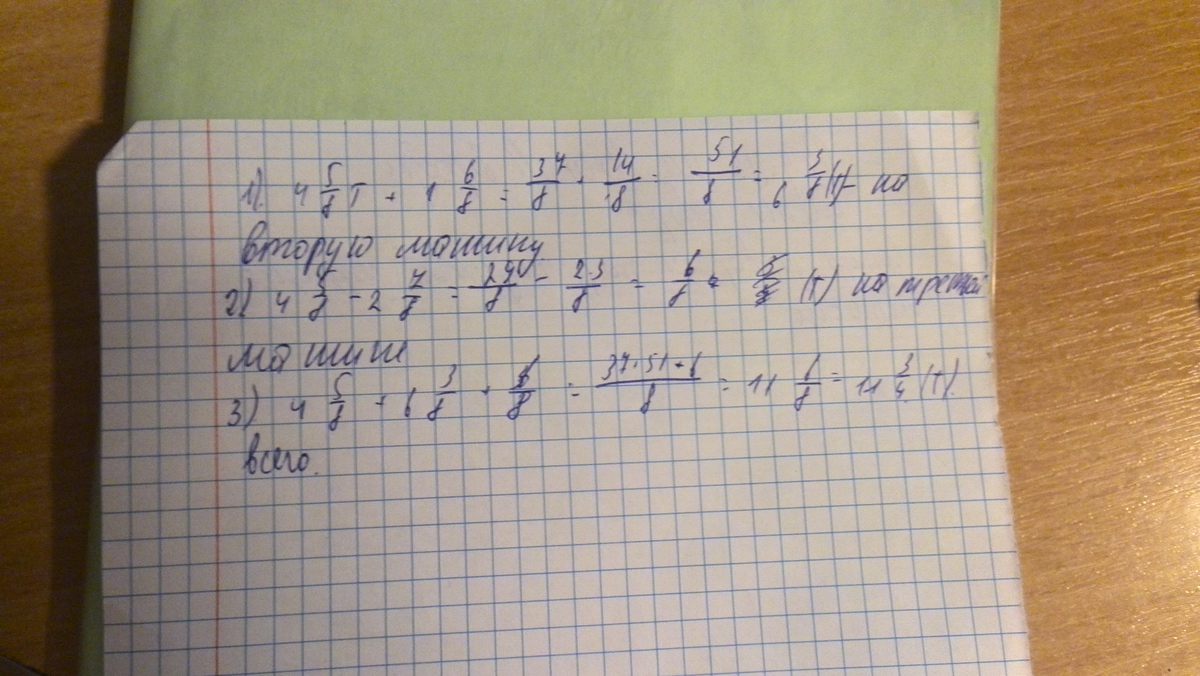 1). 4 5/8 т + 1 6/8 = 37/8 + 14/8 = 51/8 = 6 3/8 (т) - на
вторую машину
2) 4 5/8 - 2 7/8 = 29/8 - 23/8 = 6/8 = (т) на третьей
машине
3) 4 5/8 + 6 3/8 + 6/8 = 37+51+6/8 = 11 6/8 = 11 3/4 (т).
всего.